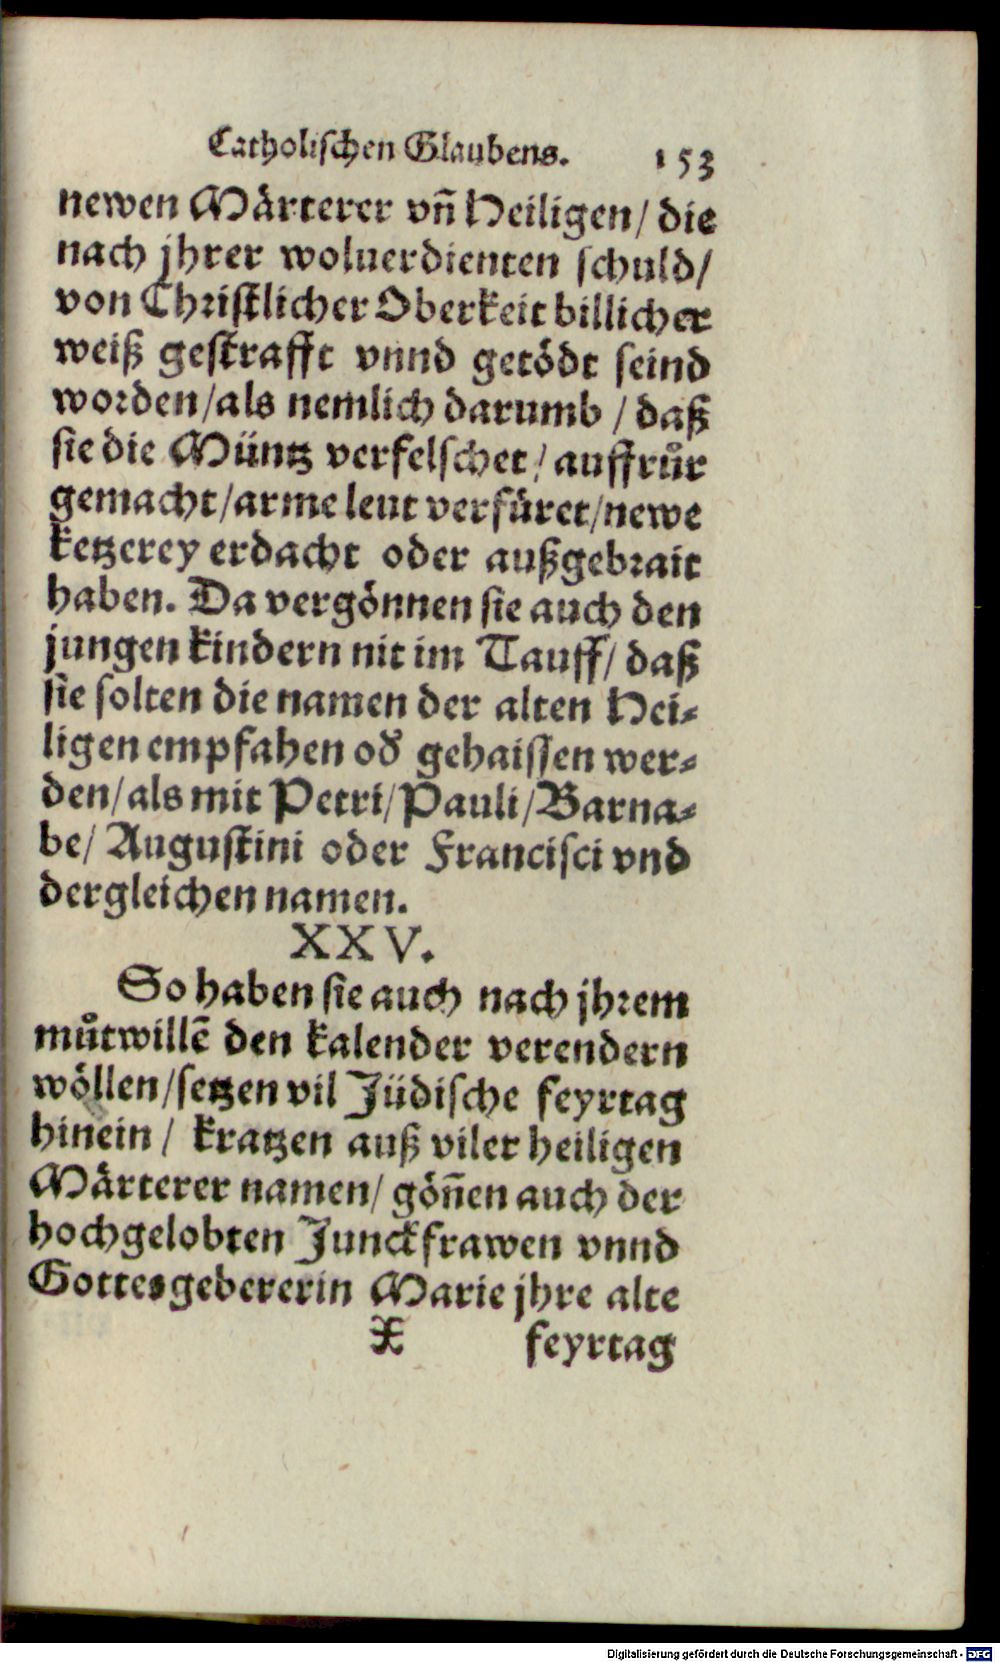 Catholischen Glaubens. 153
newen Märterer vn̄ Heiligen/ die
nach jhrer woluerdienten schuld/
von Christlicher Oberkeit billicher
weiß gestrafft vnnd getödt seind
worden/als nemlich darumb / daß
sie die Müntz verfelschet/ auffrůr
gemacht/arme leut verfüret/newe
ketzerey erdacht oder außgebrait
haben. Da vergönnen sie auch den
jungen kindern nit im Tauff/ daß
sie solten die namen der alten Hei⸗
ligen empfahen od̕ gehaissen wer⸗
den/als mit Petri/Pauli/Barna⸗
be/ Augustini oder Francisci vnd
dergleichen namen.
XXV.
So haben sie auch nach jhrem
můtwillē den kalender verendern
wöllen/setzen vil Jüdische feyrtag
hinein/ kratzen auß viler heiligen
Märterer namen/ gön̄en auch der
hochgelobten Junckfrawen vnnd
Gottesgebererin Marie jhre alte
X feyrtag
Digitalisierung gefördert durch die Deutsche Forschungsgemeinschaft - DFG